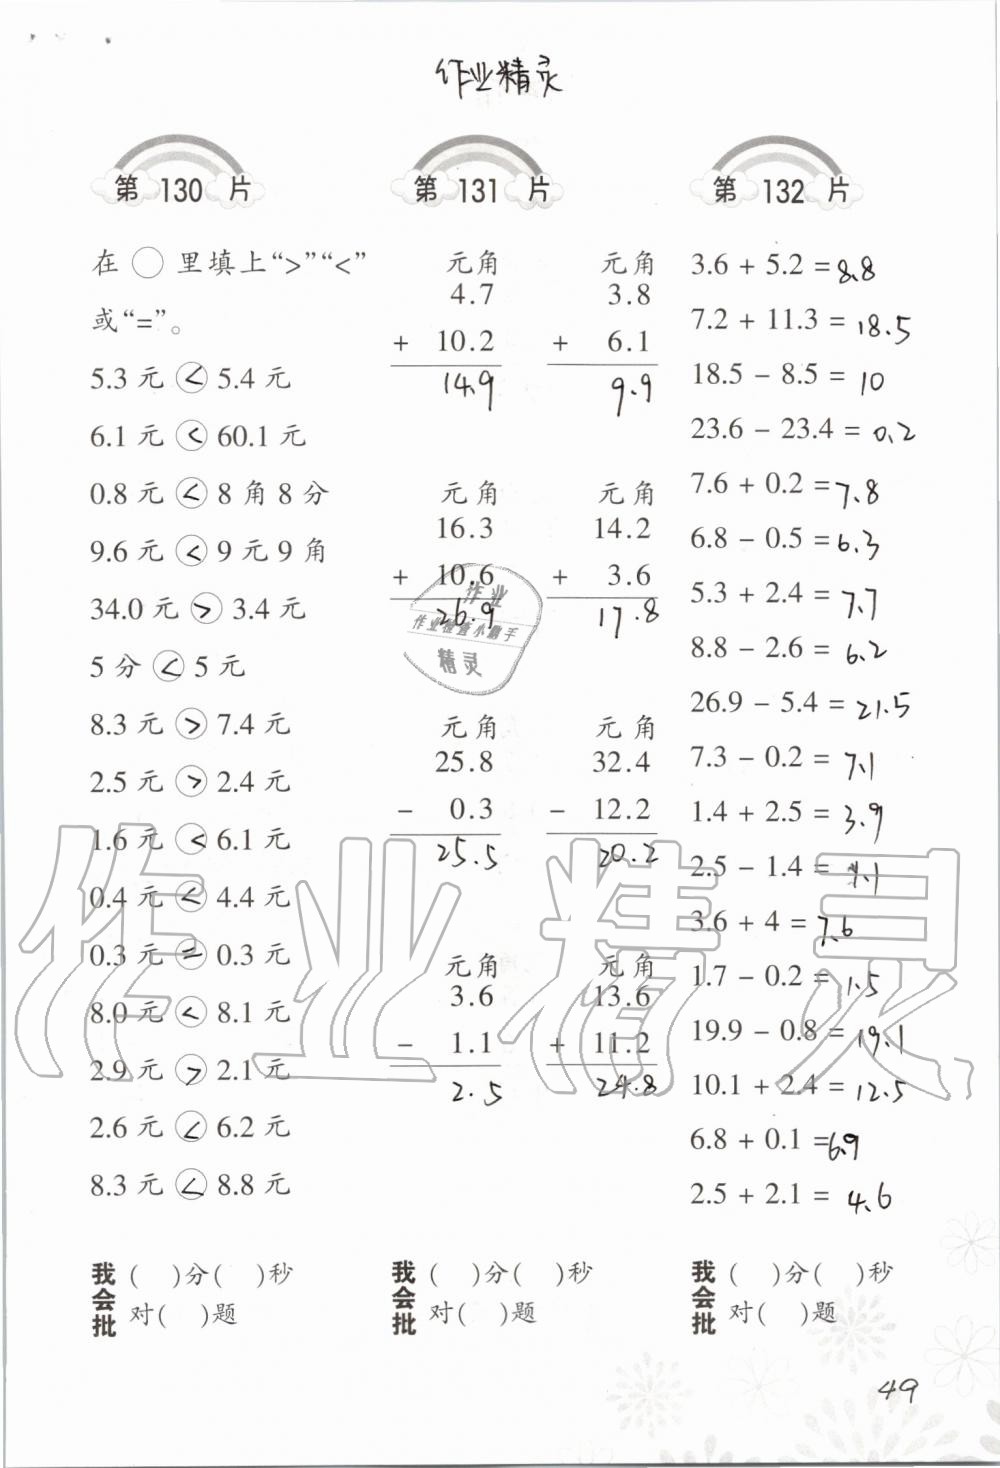 作业精灵
第 130 片
在 ○ 里填上“>”“<”
或“=”。
5.3 元 < 5.4 元
6.1 元 < 60.1 元
0.8 元 < 8 角 8 分
9.6 元 < 9 元 9 角
34.0 元 > 3.4 元
5 分 < 5 元
8.3 元 > 7.4 元
2.5 元 > 2.4 元
1.6 元 < 6.1 元
0.4 元 < 4.4 元
0.3 元 = 0.3 元
8.0 元 < 8.1 元
2.9 元 > 2.1 元
2.6 元 < 6.2 元
8.3 元 < 8.8 元
我会批
( )分( )秒
对( )题
第 131 片
元角 元角
4.7 3.8
+ 10.2 + 6.1
14.9 9.9
元角 元角
16.3 14.2
+ 10.6 + 3.6
26.9 17.8
作业
作业检查小帮手
精灵
元角 元角
25.8 32.4
− 0.3 − 12.2
25.5 20.2
元角 元角
3.6 13.6
− 1.1 + 11.2
2.5 24.8
我会批
( )分( )秒
对( )题
第 132 片
3.6 + 5.2 = 8.8
7.2 + 11.3 = 18.5
18.5 − 8.5 = 10
23.6 − 23.4 = 0.2
7.6 + 0.2 = 7.8
6.8 − 0.5 = 6.3
5.3 + 2.4 = 7.7
8.8 − 2.6 = 6.2
26.9 − 5.4 = 21.5
7.3 − 0.2 = 7.1
1.4 + 2.5 = 3.9
2.5 − 1.4 = 1.1
3.6 + 4 = 7.6
1.7 − 0.2 = 1.5
19.9 − 0.8 = 19.1
10.1 + 2.4 = 12.5
6.8 + 0.1 = 6.9
2.5 + 2.1 = 4.6
我会批
( )分( )秒
对( )题
作业精灵
49